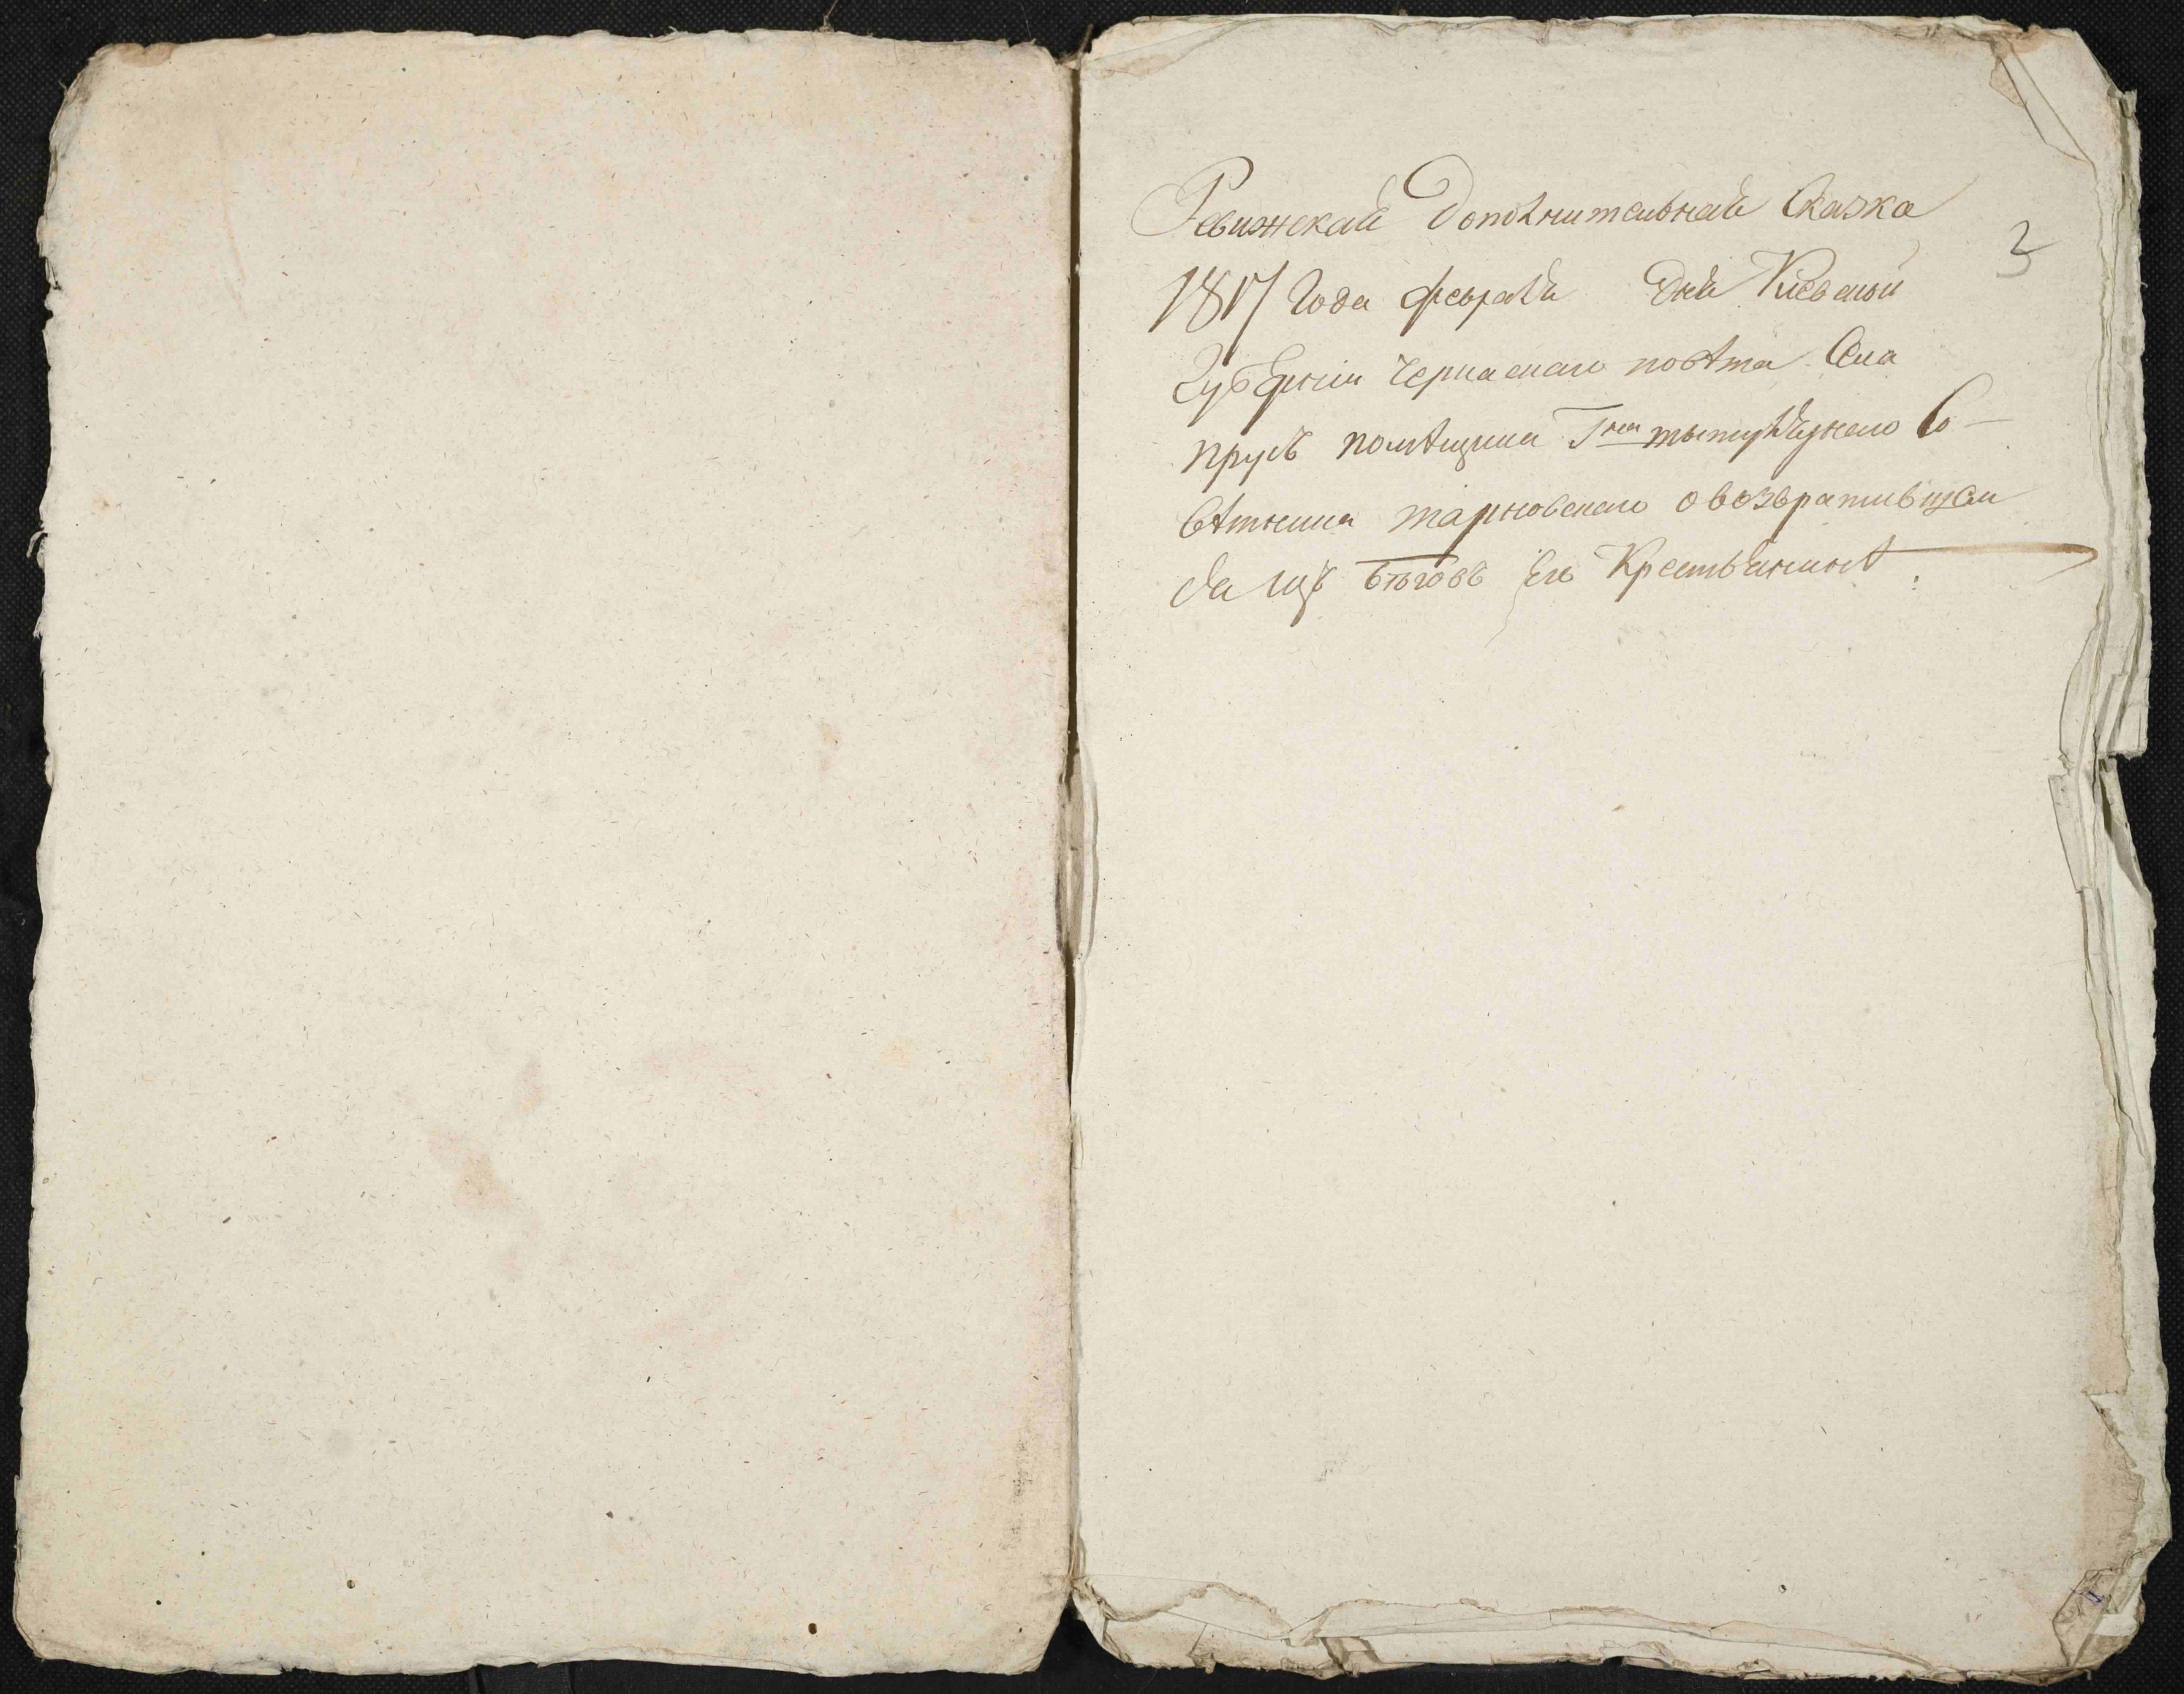 Ревижская дополнительная Сказка
3
1817 Года февраля дня Киевской
Губернии Черкаскаго повѣта Села
прусъ помѣщика Г<sup>на</sup> титулярнаго Со-
вѣтника тарновскаго о возвратившем
ся изъ бѣговъ Его Крестьянинѣ